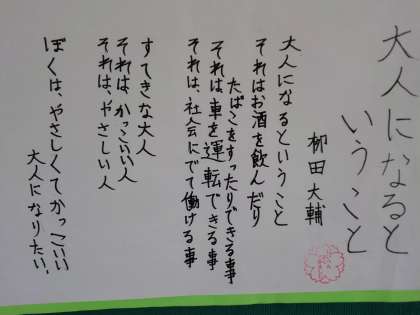 大人になると
いうこと
柳田大輔
大人になるということ
それはお酒を飲んだり
たばこをすったりできる事
それは車を運転できる事
それは、社会にでて働ける事
すてきな大人
それは、かっこいい人
それは、やさしい人
ぼくは、やさしくてかっこいい
大人になりたい。